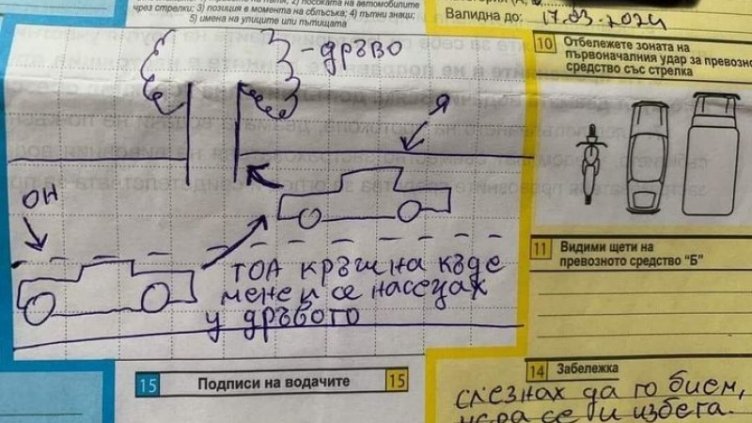 чрез стрелки; 3) позиция в момента на сблъсъка; 4) пътни знаци;
5) имена на улиците или пътищата
Валидна до: 17.03.2024
10 Отбележете зоната на
първоначалния удар за превозно
средство със стрелка
- дръво
Я
ОН
ТОА КРЪШНА КЪДЕ
МЕНЕ И СЕ НАСЕЦАХ
У ДРЪВОТО
11 Видими щети на
превозното средство "Б"
15 Подписи на водачите 15
14 Забележка
слезнах да го бием,
се и избега.